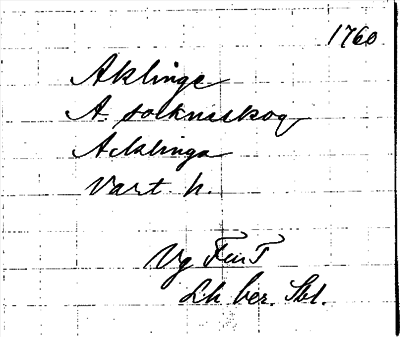 1760
Aklinge
A. sockneskog
Acklinga
Vart. h.
Vg
Lh ber. Sbl.